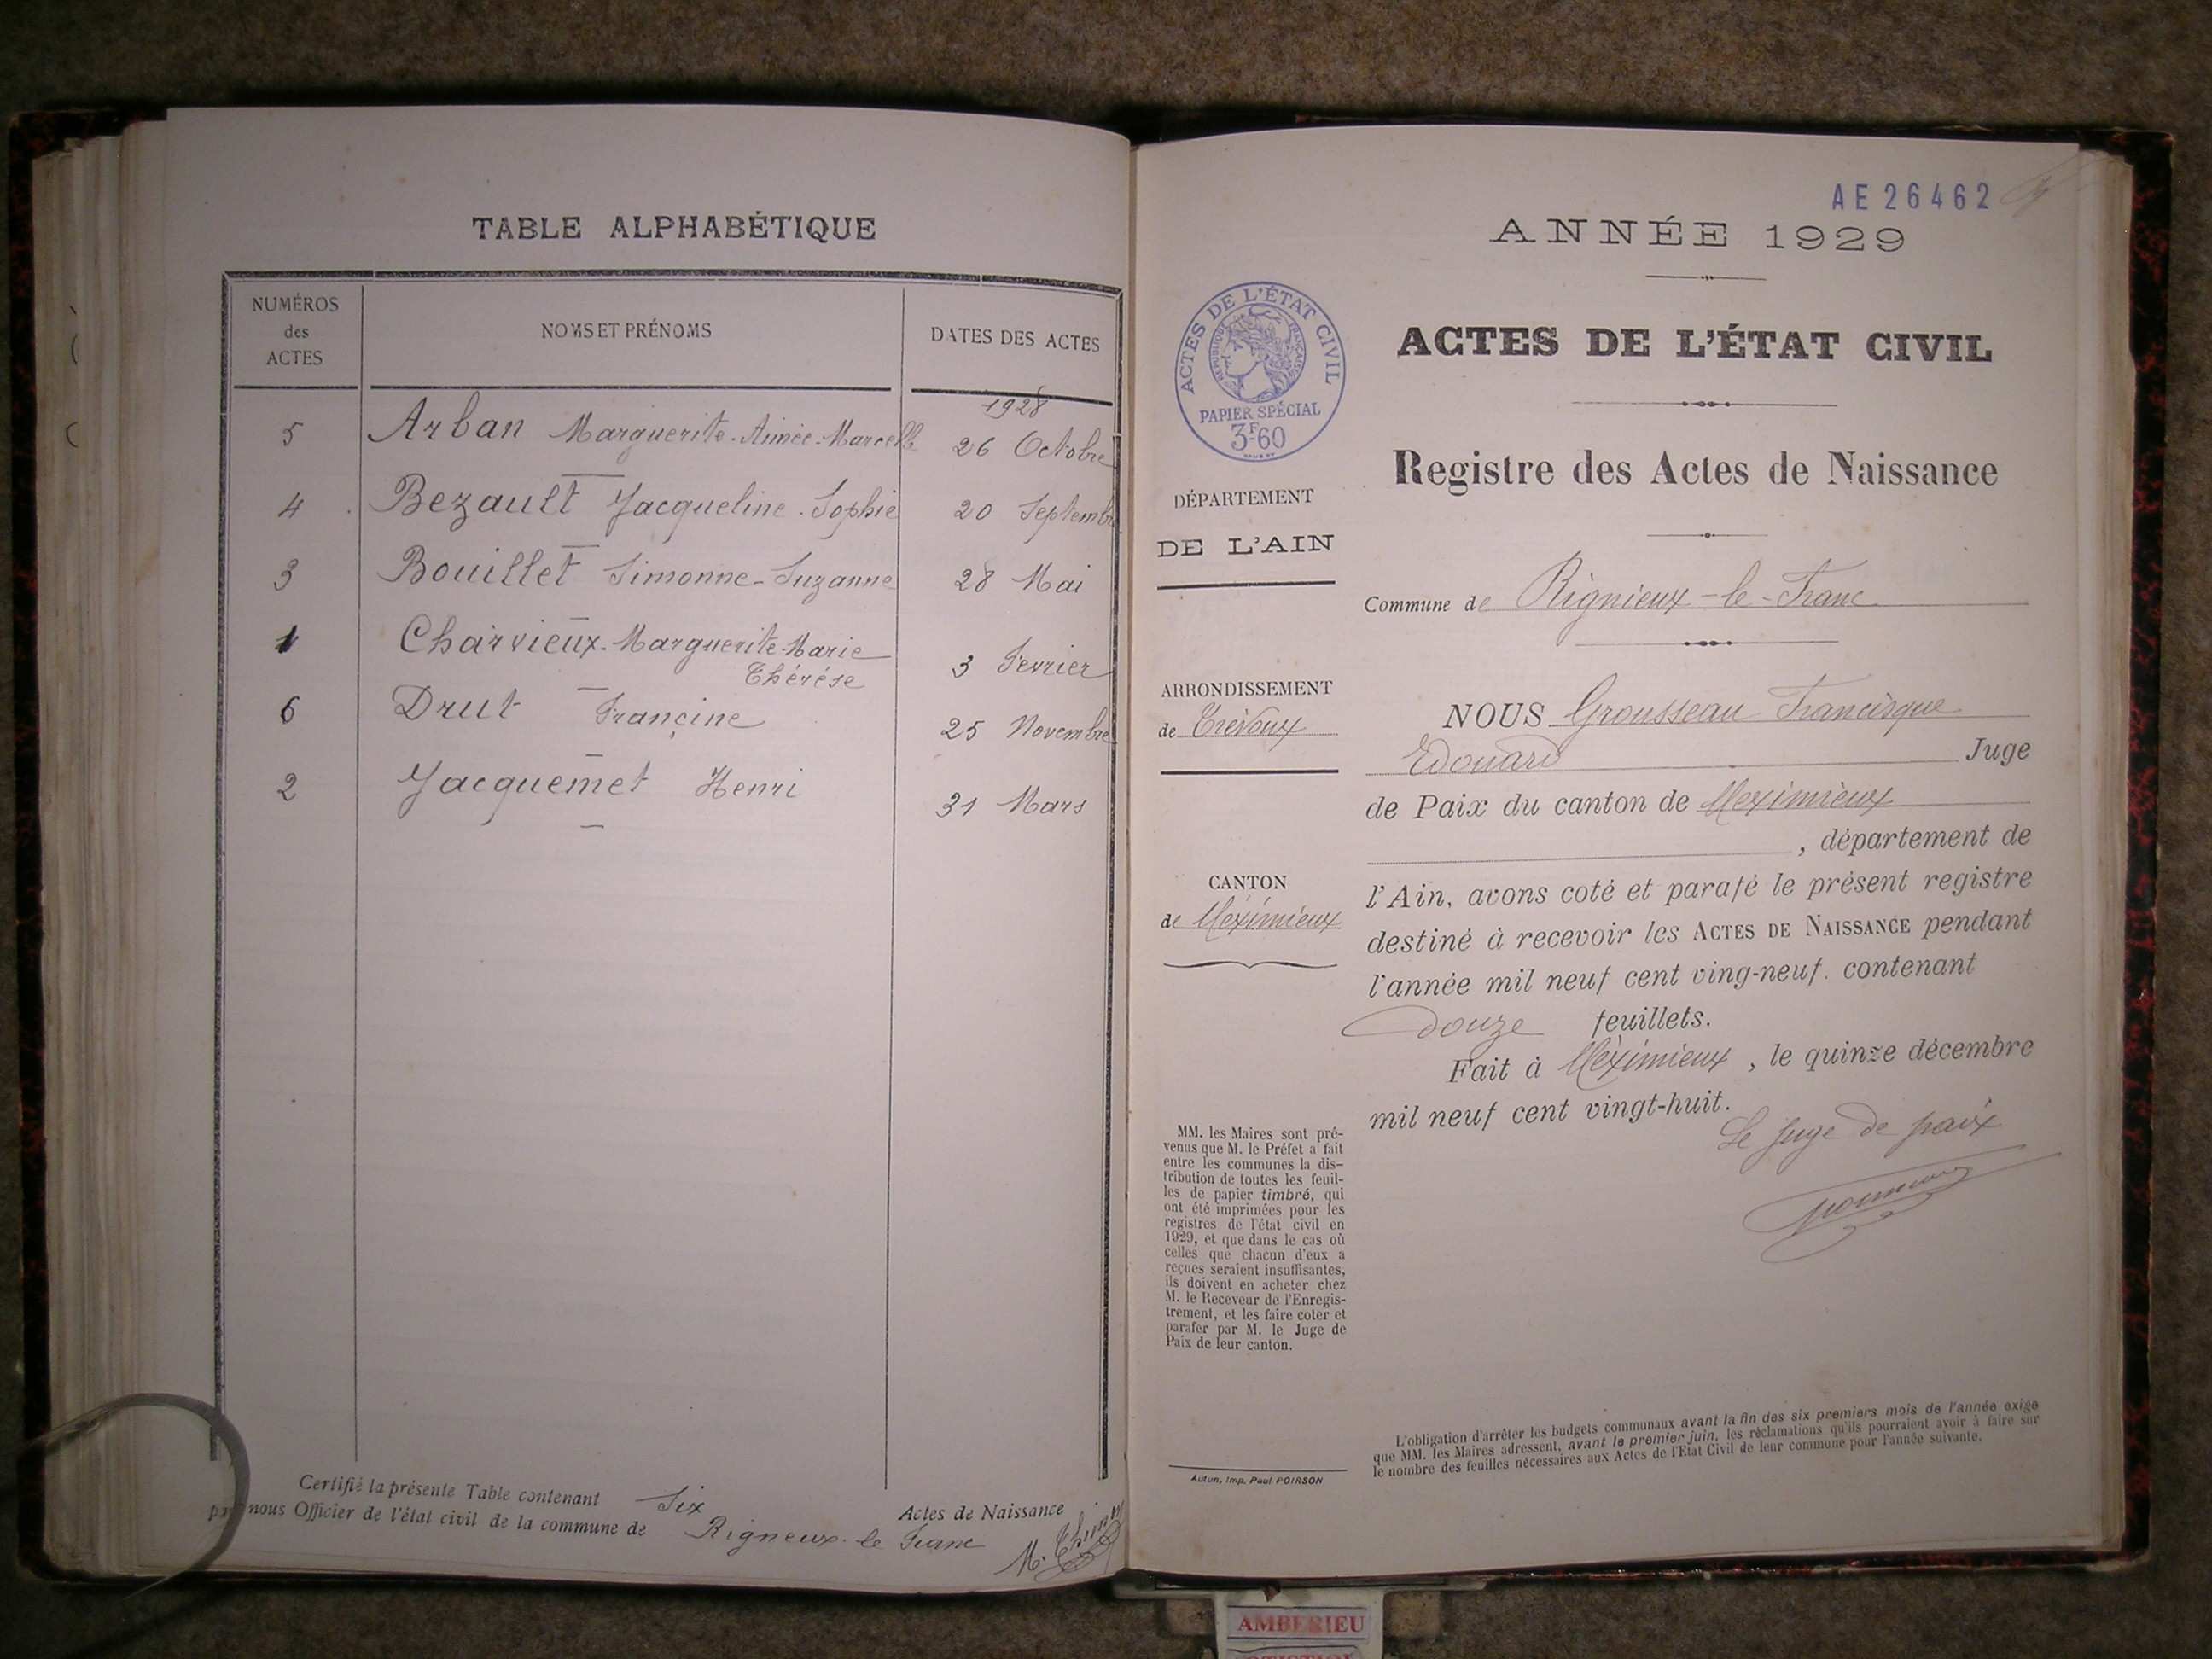 TABLE ALPHABÉTIQUE
NUMÉROS
des
ACTES
NOMS ET PRÉNOMS
DATES DES ACTES
1928
5 Arban Marguerite-Aimée-Marcelle 26 Octobre
4 Bezault Jacqueline-Sophie 20 Septembre
3 Bouillet Simonne-Suzanne 28 Mai
1 Charvieux-Marguerite-Marie
Thérèse 3 Fevrier
6 Drut Françine 25 Novembre
2 Jacquemet Henri 31 Mars
Certifié la présente Table contenant Six Actes de Naissance
par nous Officier de l'état civil de la commune de Rigneux-le Franc
AE 26462
ANNÉE 1929
ACTES DE L'ÉTAT CIVIL
RÉPUBLIQUE FRANÇAISE
PAPIER SPÉCIAL
3F60
ACTES DE L'ÉTAT CIVIL
Registre des Actes de Naissance
DÉPARTEMENT
DE L'AIN
Commune de Rignieux-le-Franc
ARRONDISSEMENT
de Trévoux
CANTON
de Méximieux
NOUS Grousseau Francisque
Edouard Juge
de Paix du canton de Meximieux
, département de
l'Ain, avons coté et parafé le présent registre
destiné à recevoir les ACTES DE NAISSANCE pendant
l'année mil neuf cent ving-neuf. contenant
douze feuillets.
Fait à Méximieux, le quinze décembre
mil neuf cent vingt-huit.
Le Juge de paix
MM. les Maires sont pré-
venus que M. le Préfet a fait
entre les communes la dis-
tribution de toutes les feuil-
les de papier timbré, qui
ont été imprimées pour les
registres de l'état civil en
1929, et que dans le cas où
celles que chacun d'eux a
reçues seraient insuffisantes,
ils doivent en acheter chez
M. le Receveur de l'Enregis-
trement, et les faire coter et
parafer par M. le Juge de
Paix de leur canton.
Autun, Imp. Paul POIRSON
L'obligation d'arrêter les budgets communaux avant la fin des six premiers mois de l'année exige
que MM. les Maires adressent, avant le premier juin, les réclamations qu'ils pourraient avoir à faire sur
le nombre des feuilles nécessaires aux Actes de l'Etat Civil de leur commune pour l'année suivante.
AMBERIEU